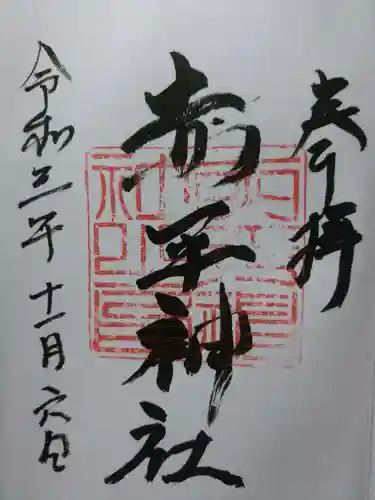 奉拝
前平神社
令和三年十一月六日